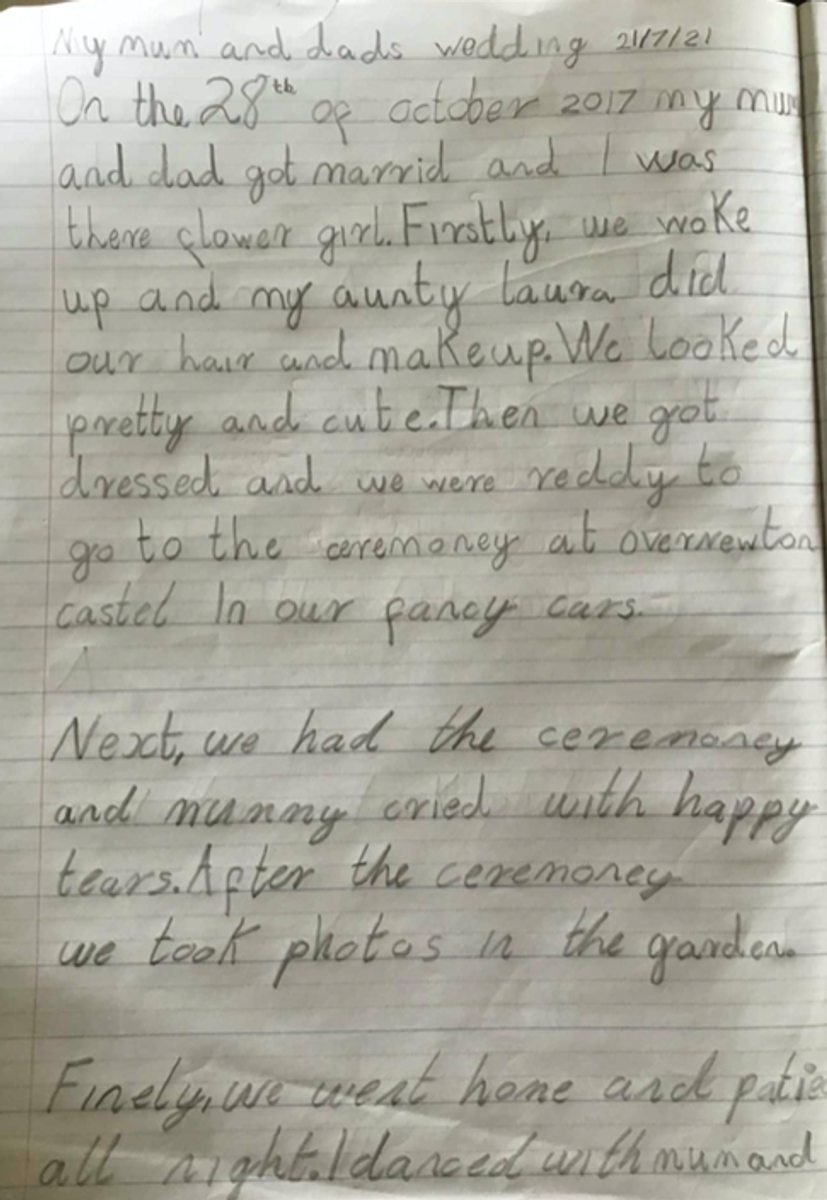 My mum and dads wedding 21/7/21
On the 28th of october 2017 my mum
and dad got marrid and I was
there flower girl. Firstly, we woke
up and my aunty laura did
our hair and makeup. We looked
pretty and cute. Then we got
dressed and we were reddy to
go to the ceremoney at overnewton
castel In our fancy cars.
Next, we had the ceremoney
and mummy cried with happy
tears. After the ceremoney
we took photos in the garden.
Finely, we went home and
all night. I danced with mum and